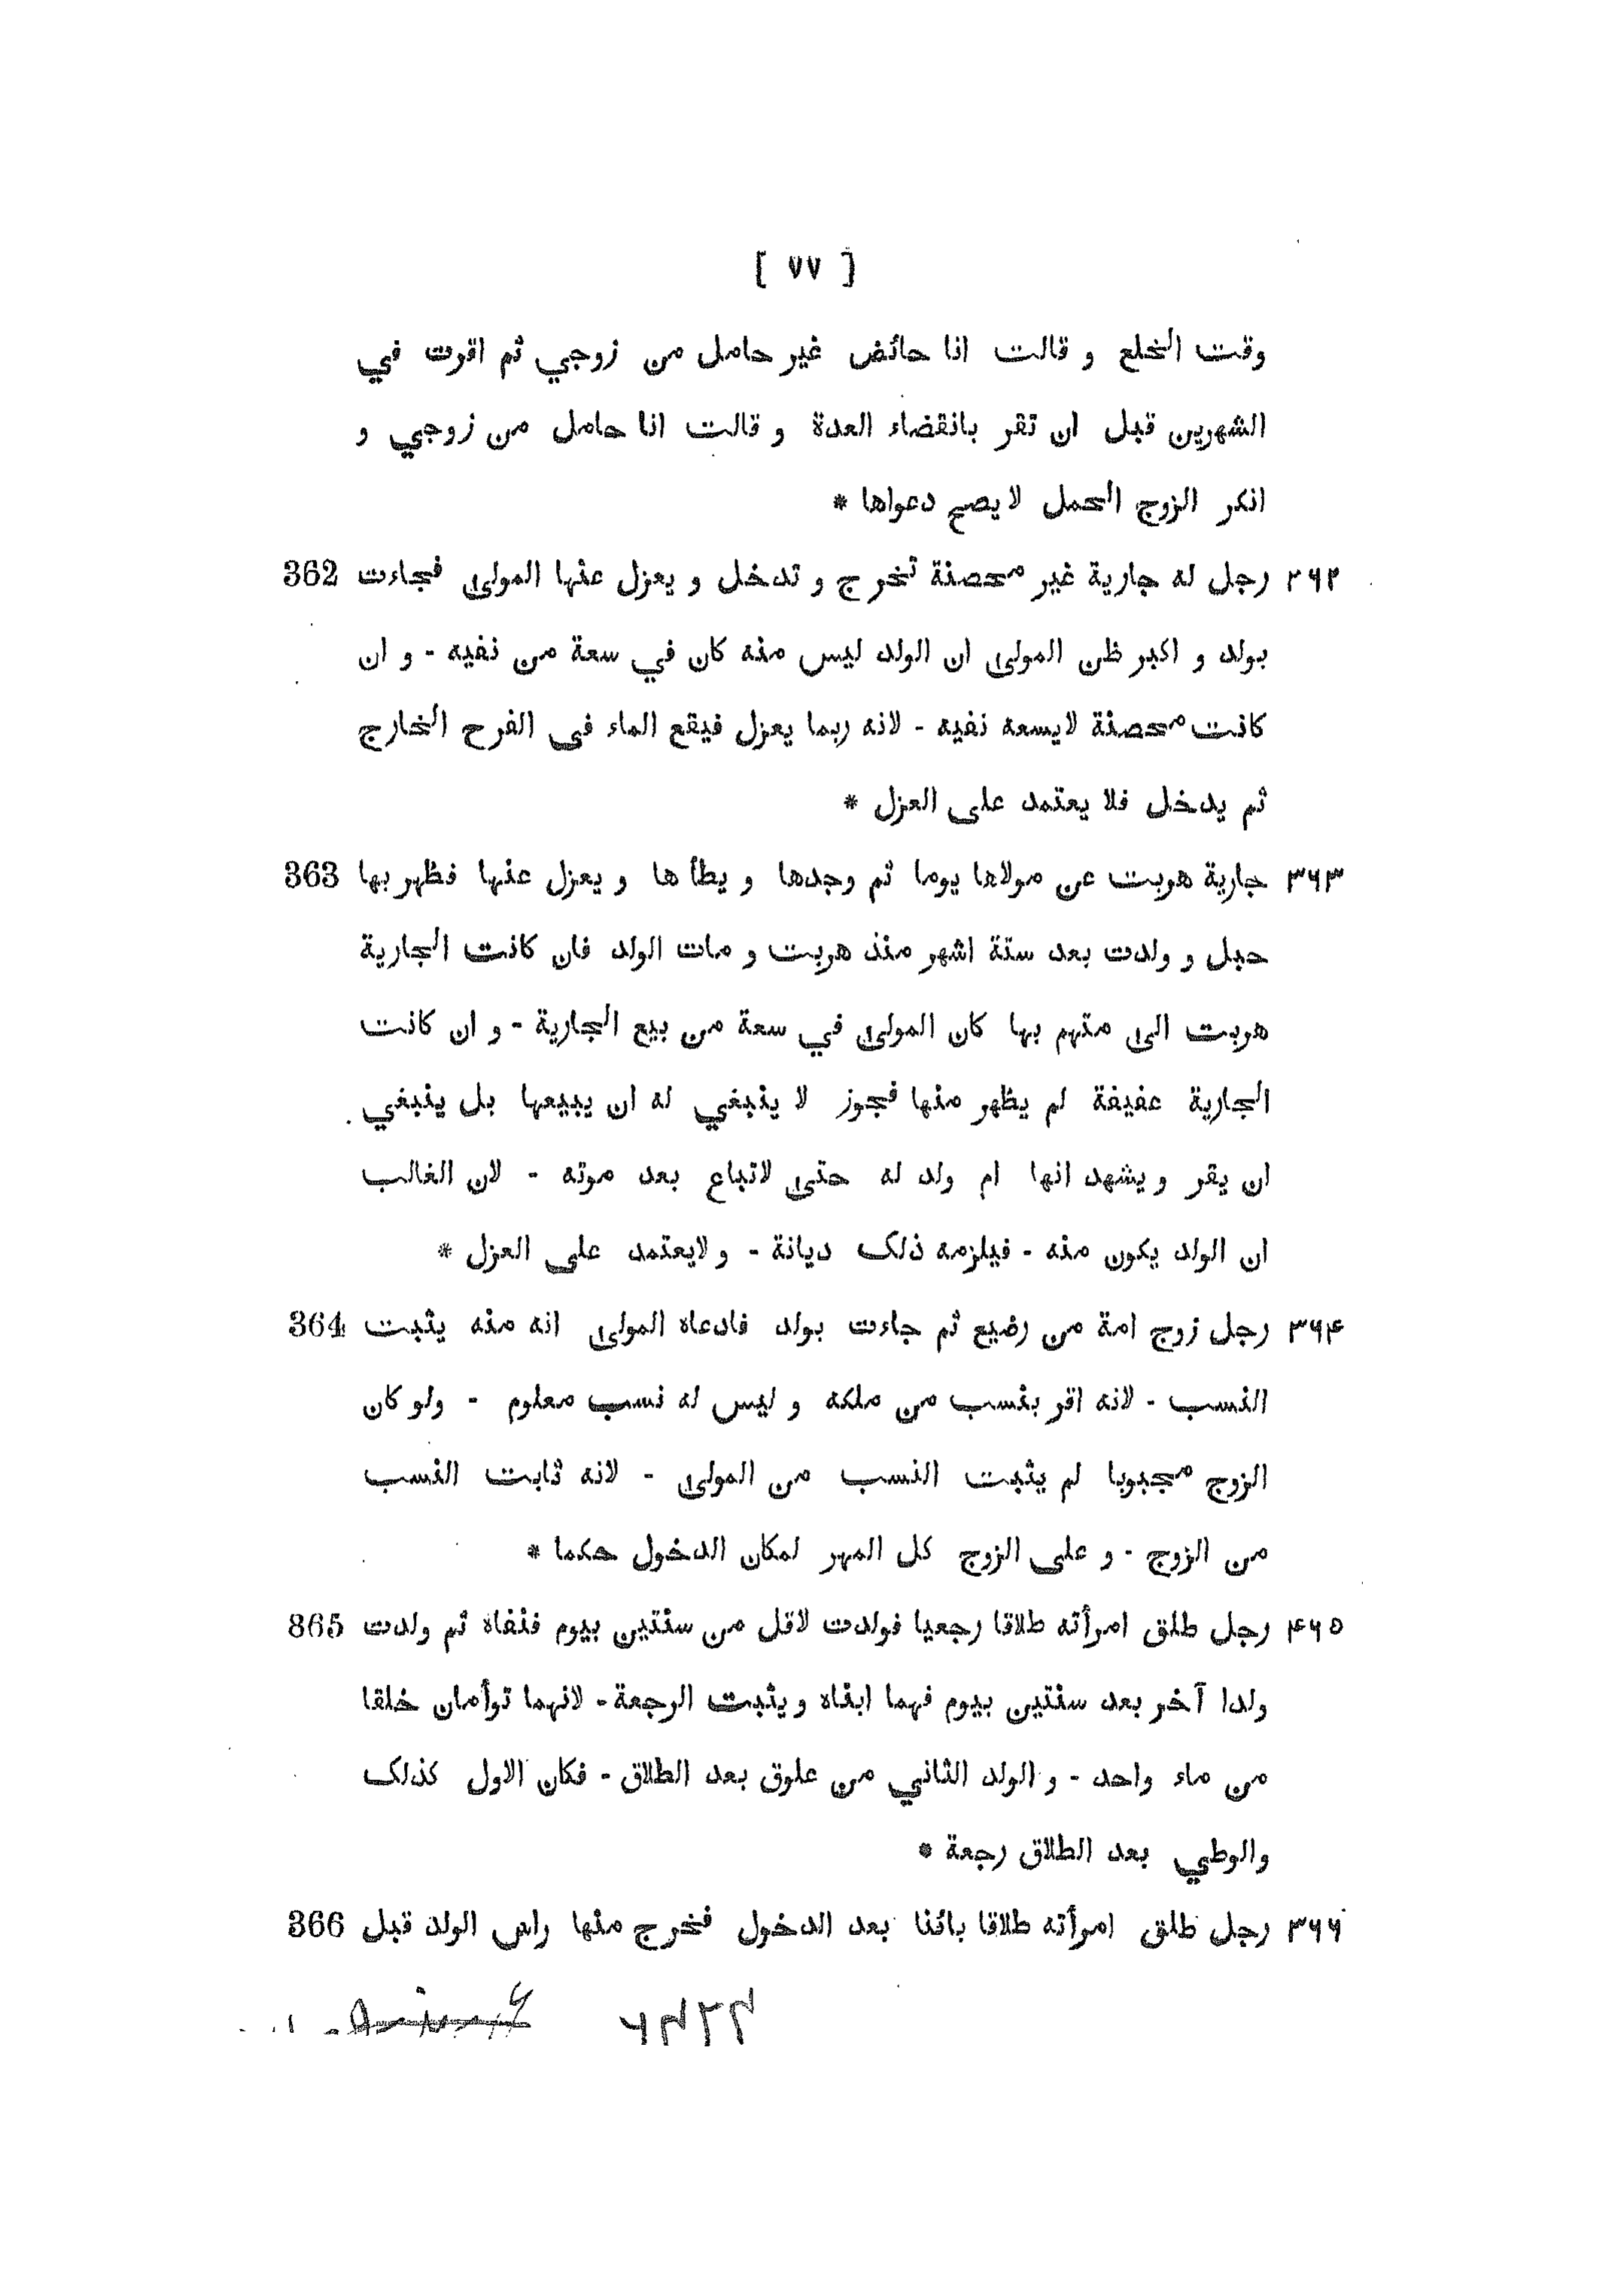 [ ٧٧ ]
وقت الخلع و قالت انا حائض غير حامل من زوجي ثم اقرت في
الشهرين قبل ان تقر بانقضاء العدة و قالت انا حامل من زوجي و
انكر الزوج الحمل لا يصح دعواها *
٣٦٢ رجل له جارية غير محصنة تخرج و تدخل و يعزل عنها المولى فجاءت 362
بولد و اكبر ظن المولى ان الولد ليس منه كان في سعة من نفيه - و ان
كانت محصنة لايسعه نفيه - لانه ربما يعزل فيقع الماء فى الفرح الخارج
ثم يدخل فلا يعتمد على العزل *
٣٦٣ جارية هربت عن مولاها يوما ثم وجدها و يطأها و يعزل عنها فظهر بها 363
حبل و ولدت بعد ستة اشهر منذ هربت و مات الولد فان كانت الجارية
هربت الى متهم بها كان المولى في سعة من بيع الجارية - و ان كانت
الجارية عفيفة لم يظهر منها فجوز لا ينبغي له ان يبيعها بل ينبغي
ان يقر و يشهد انها ام ولد له حتى لاتباع بعد موته - لان الغالب
ان الولد يكون منه - فيلزمه ذلك ديانة - و لايعتمد على العزل *
٣٦۴ رجل زوج امة من رضيع ثم جاءت بولد فادعاه المولى انه منه يثبت 364
النسب - لانه اقر بنسب من ملكه و ليس له نسب معلوم - ولو كان
الزوج مجبوبا لم يثبت النسب من المولى - لانه ثابت النسب
من الزوج - و على الزوج كل المهر لمكان الدخول حكما *
۴٦٥ رجل طلق امرأته طلاقا رجعيا فولدت لاقل من سنتين بيوم فنفاه ثم ولدت 365
ولدا آخر بعد سنتين بيوم فهما ابناه و يثبت الرجعة - لانهما توأمان خلقا
من ماء واحد - و الولد الثاني من علوق بعد الطلاق - فكان الاول كذلك
والوطي بعد الطلاق رجعة *
٣٦٦ رجل طلق امرأته طلاقا بائنا بعد الدخول فخرج منها راس الولد قبل 366